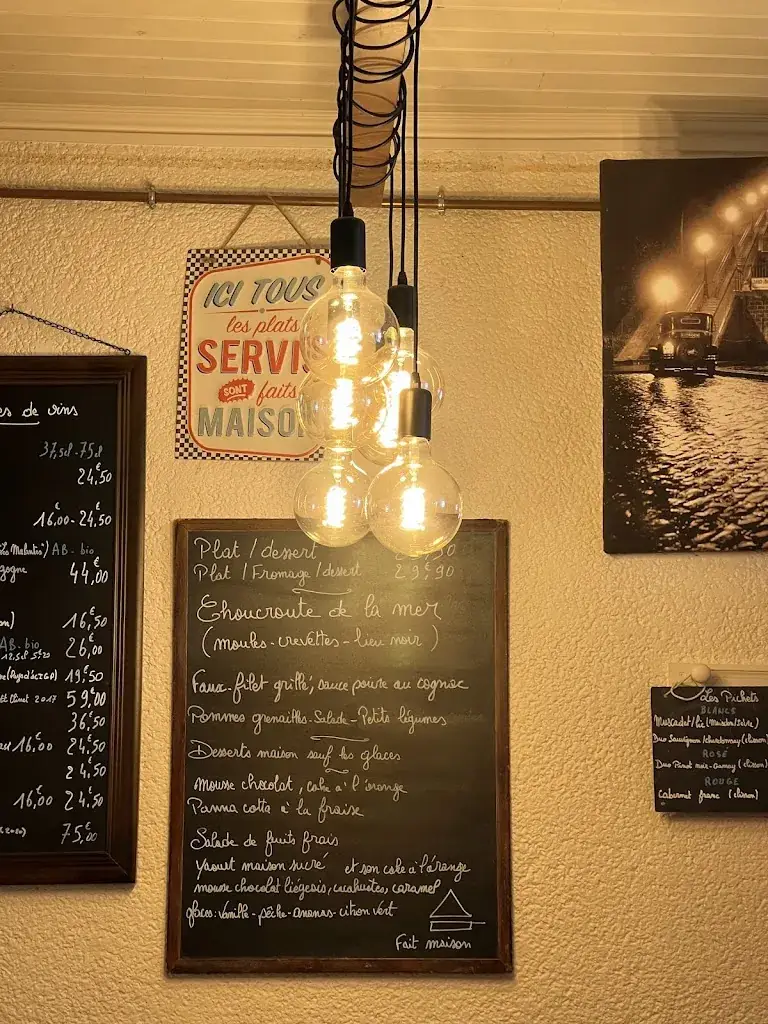 ICI TOUS
les plats
SERVIS
SONT faits
MAISON
es de vins
37,5cl - 75cl
24,50€
16,00 - 24,50€
AB - bio
44,00€
16,50€
AB. bio
26,00€
19,50€
2017 59,00€
36,50€
16,00€ 24,50€
24,50€
16,00€ 24,50€
75,00€
Plat / dessert
Plat / Fromage / dessert 29,90
Choucroute de la mer
(moules - crevettes - lieu noir)
Faux-filet grillé, sauce poivre au cognac
Pommes grenailles - Salade - Petits légumes
Desserts maison sauf les glaces
Mousse chocolat, cake à l'orange
Panna cotta à la fraise
Salade de fruits frais
Yaourt maison sucré et son cake à l'orange
mousse chocolat liégeois, cacahuètes, caramel
glaces: vanille - pêche - ananas - citron vert
Fait maison
Les Pichets
BLANCS
Muscadet/lie
Duo Sauvignon/chardonnay (clisson)
ROSÉ
Duo Pinot noir - gamay (clisson)
ROUGE
Cabernet franc (clisson)